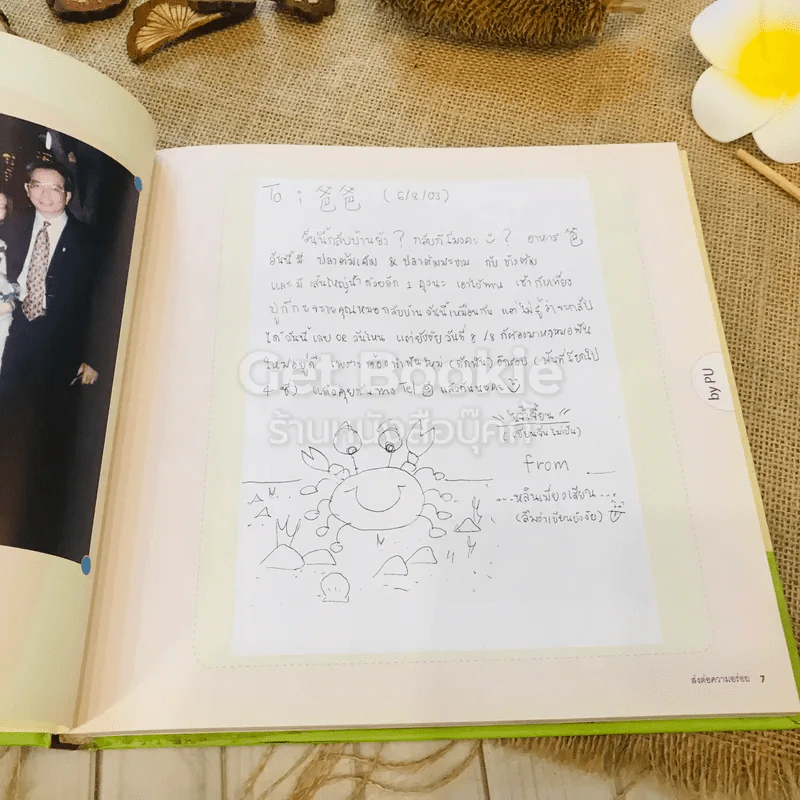 To : 爸爸 (6/8/03)
วันนี้กลับบ้านยัง ? กลับกี่โมงคะ ? อาหาร 爸
วันนี้มี ปลาต้มเค็ม & ปลาต้มมะขาม กับ ข้าวต้ม
และ มี เส้นใหญ่น้ำ ด้วยอีก 1 ถุงนะ เอาไว้ทาน
คุณหมอ กลับบ้าน วันนี้เหมือนกัน แต่ไม่รู้ว่าจะกลับ
ได้ วันนี้ เลย or วันไหน แต่ยังไง วันที่ 8 /8 ก็ต้องมาหาหมอฟัน
ใหม่อยู่ดี เพราะ ต้อง ฟันใหม่
4 ซี่) แล้วคุยกันทาง Tel แล้วกันนะคะ
(เขียนจีนไม่เป็น)
from
...หลินเพี่ยงเสียน...
(ลืมว่าเขียนยังไง)
by PU
Get Bookie
ร้านหนังสือบุ๊คกี้
ส่งต่อความอร่อย 7